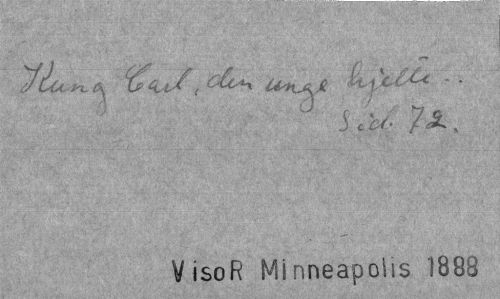 Kung Carl, den unge hjelte..
Sid. 72.
VisoR Minneapolis 1888